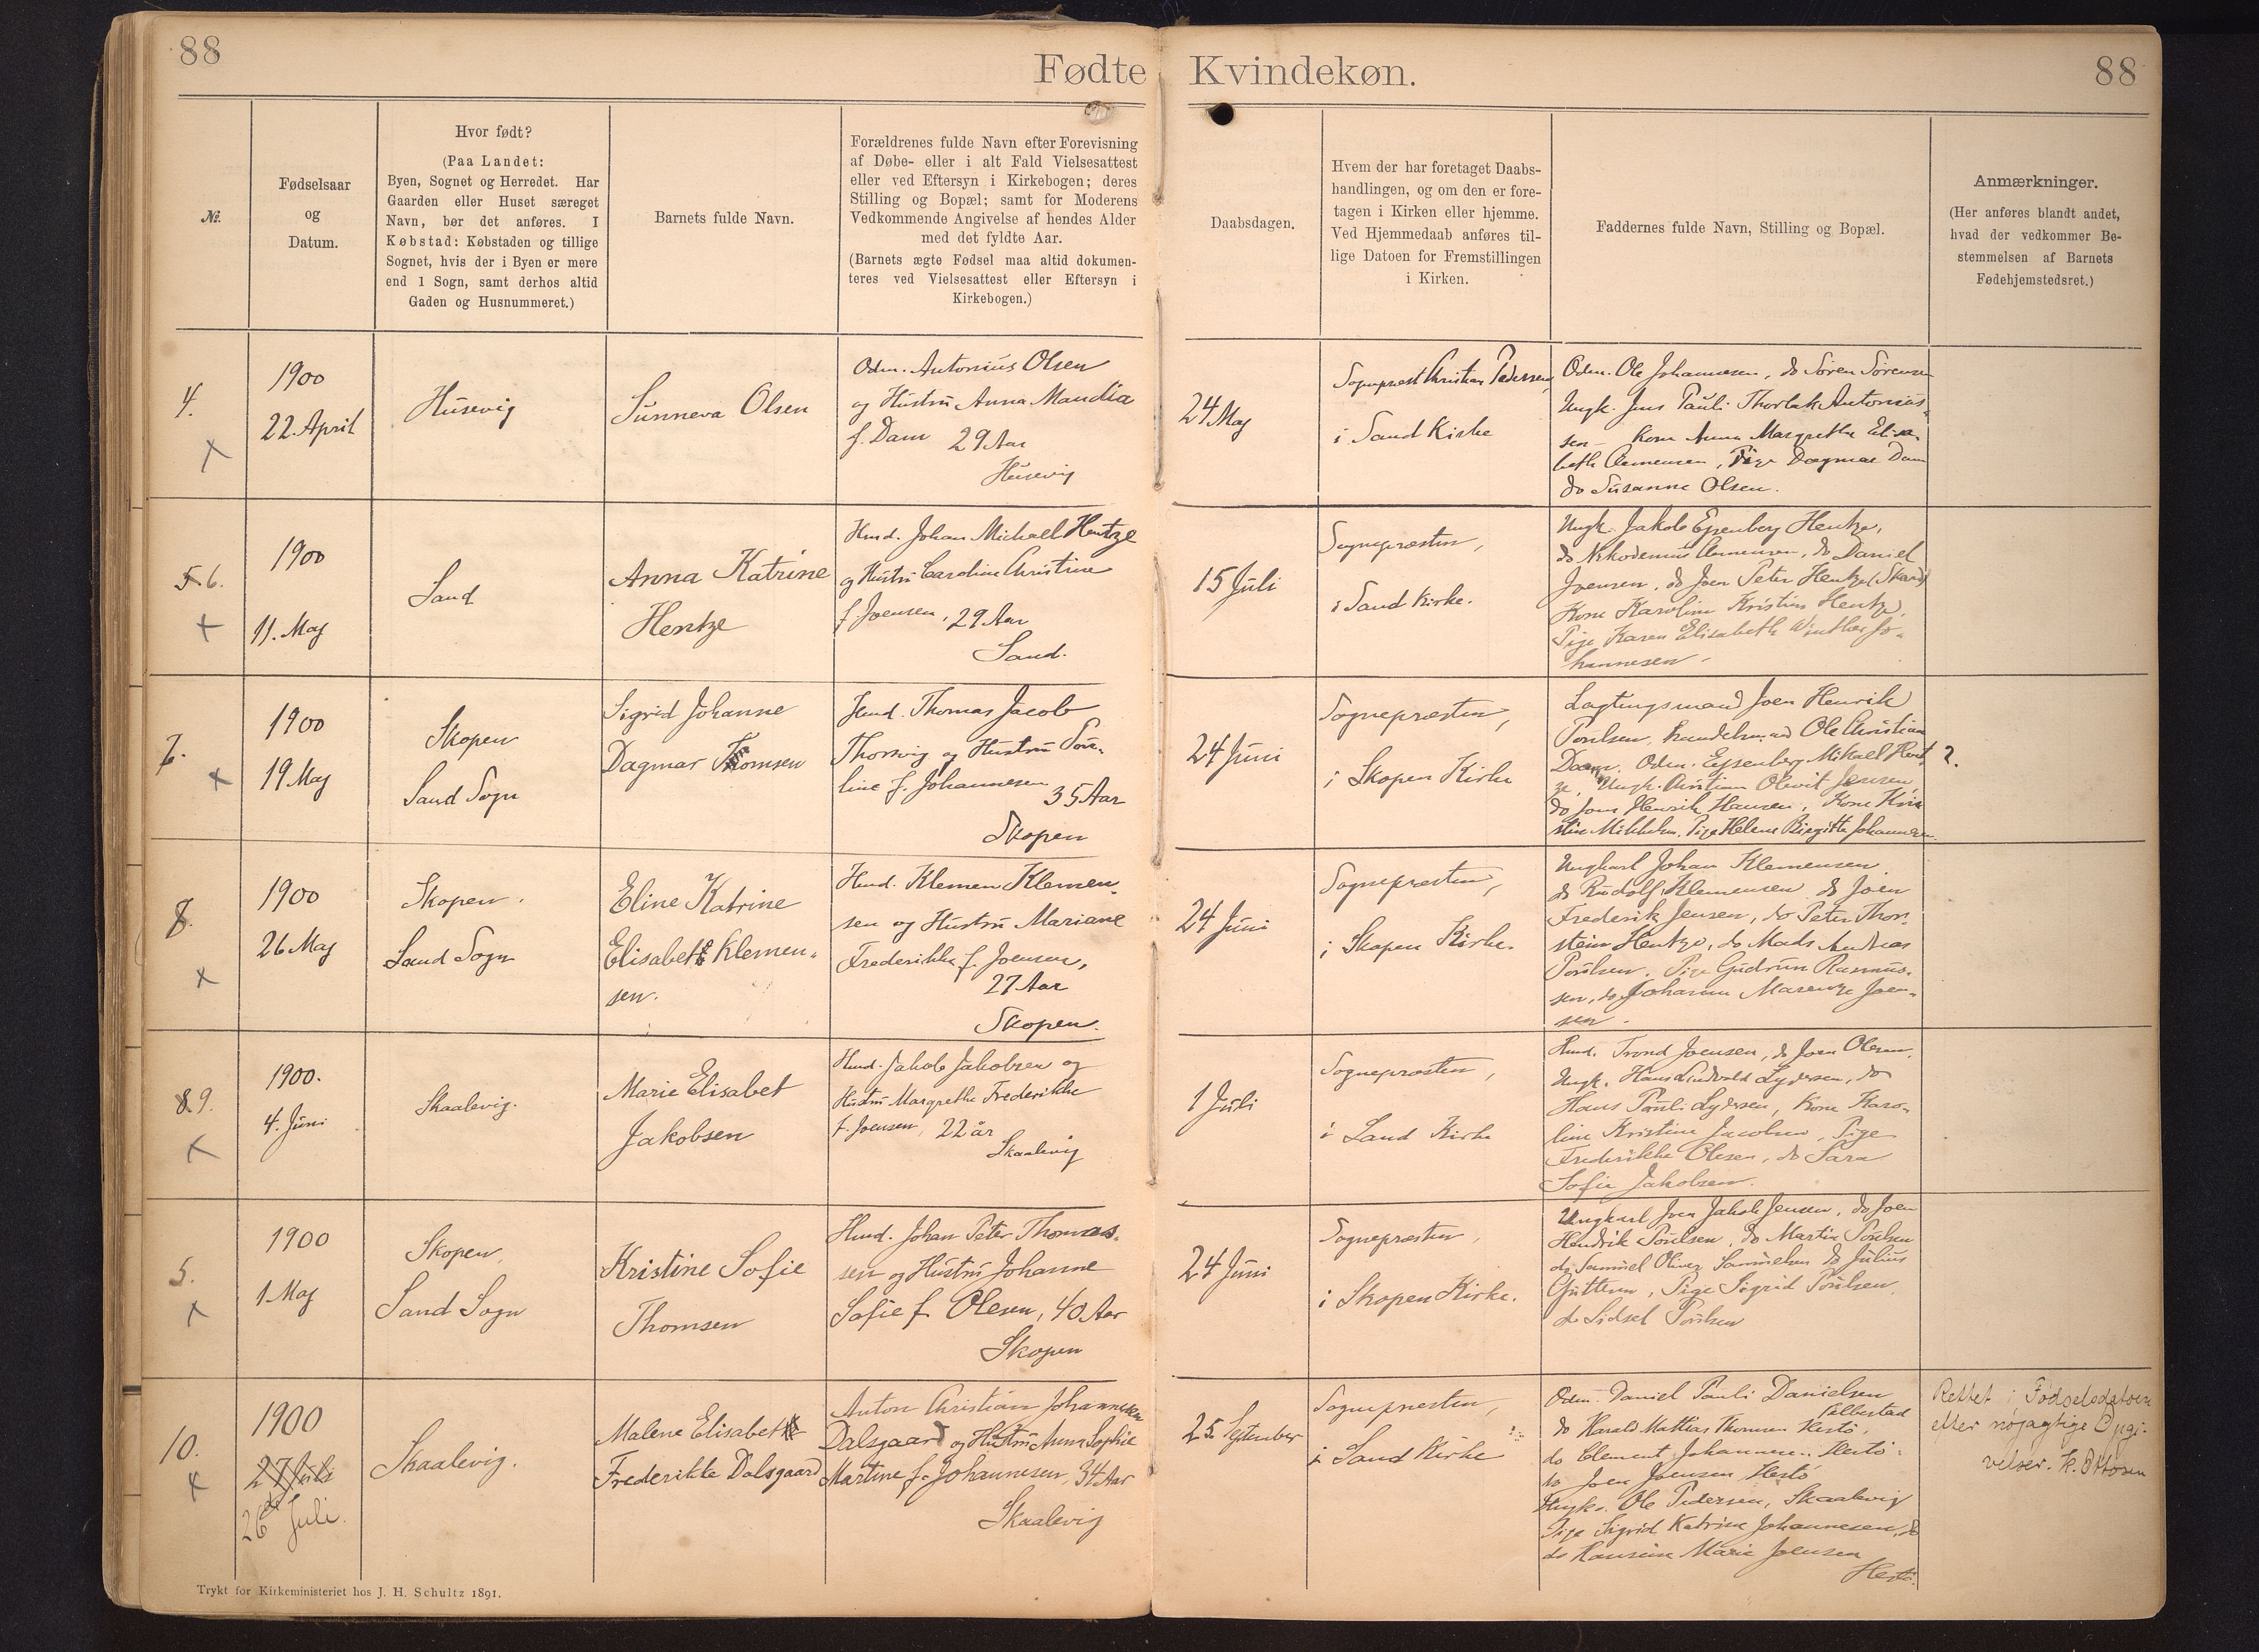 88
Fødte
Kvindekøn.
88
№.
Fødselsaar
og
Datum.
Hvor født?
(Paa Landet:
Byen, Sognet og Herredet. Har
Gaarden eller Huset særeget
Navn, bør det anføres. I
Købstad: Købstaden og tillige
Sognet, hvis der i Byen er mere
end 1 Sogn, samt derhos altid
Gaden og Husnummeret.)
Barnets fulde Navn.
Forældrenes fulde Navn efter Forevisning
af Døbe- eller i alt Fald Vielsesattest
eller ved Eftersyn i Kirkebogen; deres
Stilling og Bopæl; samt for Moderens
Vedkommende Angivelse af hendes Alder
med det fyldte Aar.
(Barnets ægte Fødsel maa altid dokumen-
teres ved Vielsesattest eller Eftersyn i
Kirkebogen.)
Daabsdagen.
Hvem der har foretaget Daabs-
handlingen, og om den er fore-
tagen i Kirken eller hjemme.
Ved Hjemmedaab anføres til-
lige Datoen for Fremstillingen
i Kirken.
Faddernes fulde Navn, Stilling og Bopæl.
Anmærkninger.
(Her anføres blandt andet,
hvad der vedkommer Be-
stemmelsen af Barnets
Fødehjemstedsret.)
4.
1900
22. April
Husevig
Sunneva Olsen
Odm. Antonius Olsen
og Hustru Anna Maudia
f. Dam 29 Aar
Husevig
24 Maj
Sognepræst Christian Pedersen,
i Sand Kirke
Odm. Ole Johannesen, do Sören Sörensen
Ungk. Jens Pauli Thorlak Antonius-
sen - Kone Anna Margrethe Elisa-
beth Clemensen, Pige Dagmar Dam
do Susanne Olsen.
5. 6.
1900
11. Maj
Sand
Anna Katrine
Hentze
Hmd. Johan Michael Hentze
og Hustru Caroline Christine
f. Joensen, 29 Aar
Sand.
15 Juli
Sognepræsten,
i Sand Kirke.
Ungk. Jakob Ejsenberg Hentze,
do Nikodemus Clemensen, do Daniel
Joensen, do Joen Peter Hentze (Skard)
Kone Karoline Kristine Hentze,
Pige Karen Elisabeth Winther Jo-
hannesen -
7.
1900
19 Maj
Skopen
Sand Sogn
Sigrid Johanne
Dagmar Thomsen
Hmd. Thomas Jacob
Thomsen og Hustru Pou-
line f. Johannesen
35 Aar
Skopen
24 Juni
Sognepræsten,
i Skopen Kirke
Lagtingsmand Joen Henrik
Poulsen, Handelsmand Ole Christian
Dam, Odm. Ejsenberg Mikael Hent-
ze, Ungk. Christian Olevit Jensen,
do Jens Henrik Hansen, Kone Kri-
stine Mikkelsen, Pige Helene Birgitte Johannesen
?.
8.
1900
26 Maj
Skopen.
Sand Sogn
Eline Katrine
Elisabet Klemen-
sen.
Hmd. Klemen Klemen-
sen og Hustru Mariane
Frederikke f. Joensen,
27 Aar
Skopen.
24 Juni
Sognepræsten,
i Skopen Kirke.
Ungkarl Johan Klemensen
do Rudolf Klemensen, do Joen
Frederik Jensen, do Peter Thor-
stein Hentze, do Mads Andreas
Poulsen, Pige Gudrun Rasmus-
sen, do Johanne Marentze Joen-
sen -
8. 9.
1900.
4. Juni
Skaalevig.
Marie Elisabet
Jakobsen
Hmd. Jakob Jakobsen og
Hustru Margrethe Frederikke
f. Joensen, 22 år
Skaalevig
1 Juli
Sognepræsten,
i Sand Kirke
Hmd. Trond Joensen, do Joen Olesen,
Ungk. Hans Lydersen, do
Hans Pouli Lydersen, Kone Karo-
line Kristine Jacobsen, Pige
Frederikke Olesen, do Sara
Sofie Jakobsen.
5.
1900
1 Maj
Skopen,
Sand Sogn
Kristine Sofie
Thomsen
Hmd. Johan Peter Thomas-
sen og Hustru Johanne
Sofie f. Olesen, 40 Aar
Skopen
24 Juni
Sognepræsten,
i Skopen Kirke.
Ungkarl Joen Jakob Jensen, do Joen
Hendrik Poulsen, do Martin Poulsen
do Samuel Oliver Samuelsen do Julius
Guttesen, Pige Sigrid Poulsen,
do Sidsel Poulsen
10.
1900
27 Juli
26de Juli.
Skaalevig.
Malene Elisabet
Frederikke Dalsgaard
Anton Christian Johannesen
Dalsgaard og Hustru Anna Sophie
Martine f. Johannesen, 34 Aar
Skaalevig
25. September
Sognepræsten,
i Sand Kirke
Odm. Daniel Pauli Danielsen
do Harald Mattias Thomsen Hestö,
do Clement Johannesen. Hestö.
do Joen Joensen Hestö
Ungk. Ole Pedersen, Skaalevig
Pige Sigrid Katrine Johannesen, do
do Hansine Marie Joensen
Hestö.
Rettet i Fødselsdatoen
efter nøjagtige Opgi-
velser. K. Ottosen
Trykt for Kirkeministeriet hos J. H. Schultz 1891.